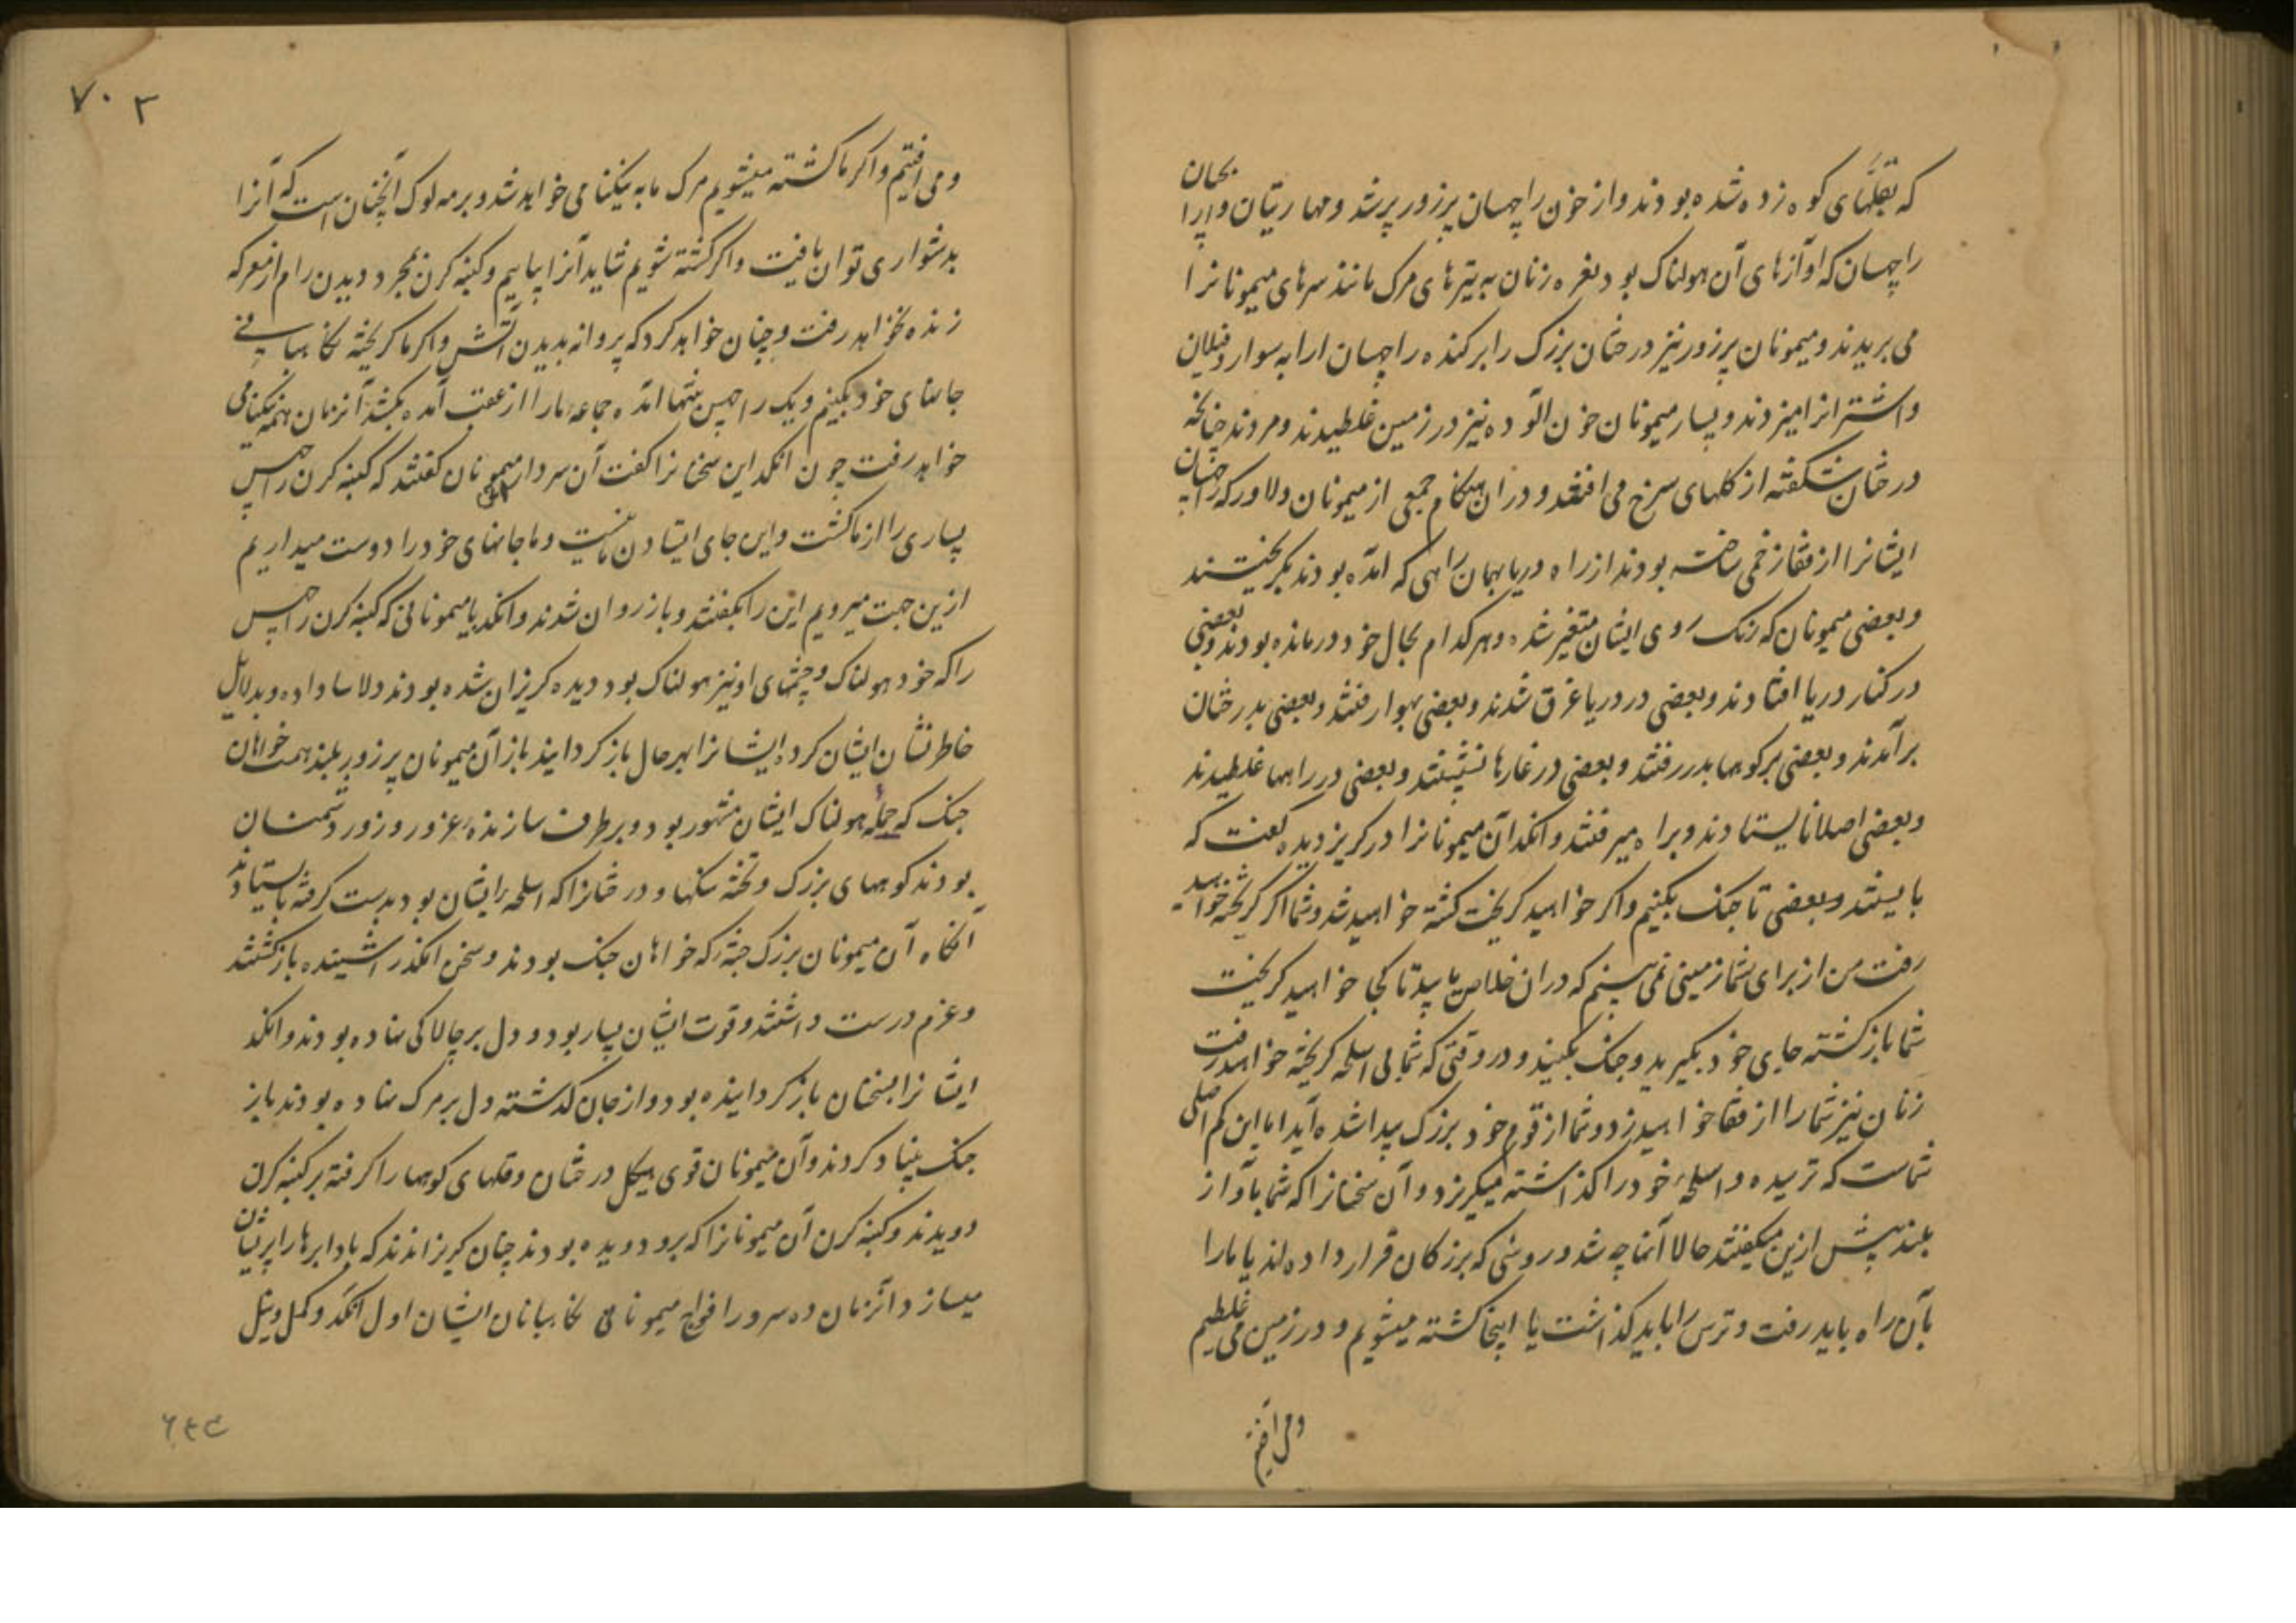 که بقلهای کوه زده شده بودند و از خون راچهسان پرزور پر شد و مهارتیان و ارابه
راچهسان که آوازهای آن هولناک بود نعره زنان به تیرهای مرک مانند سرهای میمونانرا
می بریدند و میمونان پرزور نیز درختان بزرک را برکنده راچهسان ارابه سوار و فیلان
و اشترانرا میزدند و بسیار میمونان خون آلوده نیز در زمین غلطیدند و مردند چنانچه
درختان شکفته از کلهای سرخ می افتند و در ان هنکام جمعی از میمونان دلاور که راچهسان
ایشانرا از قفا زخمی ساخته بودند از راه دریا بهمان راهی که آمده بودند بکریختند
و بعضی میمونان که رنک روی ایشان متغیر شده و هر کدام بحال خود درمانده بودند و بعضی
در کنار دریا افتادند و بعضی در دریا غرق شدند و بعضی بهوا رفتند و بعضی بدرختان
برآمدند و بعضی بر کوهها بدر رفتند و بعضی در غارها نشستند و بعضی در راهها غلطیدند
و بعضی اصلا نایستادند و براه میرفتند و انکد آن میمونانرا در کریز دیده کفت که
بایستند و بعضی تا جنک بکنیم و اکر خواهید کریخت کشته خواهید شد و شما اکر کریخته خواهید
رفت من از برای شما زمینی نمی بینم که دران خلاص یابید تا کجا خواهید کریخت
شما بازکشته جای خود بکیرید و جنک بکنید و در وقتی که شما بی اسلحه کریخته خواهید رفت
زنان نیز شما را از قفا خواهند زد و شما از قوم خود بزرک پیدا شده آید اما این کم اصلی
شماست که ترسیده و اسلحه خود را کذاشته میکریزد و آن سخنانرا که شما بآواز
بلند پیش ازین میکفتند حالا آنها چه شد و روشی که بزرکان قرار داده اند یا ما را
بآن راه باید رفت و ترس را باید کذاشت یا اینجا کشته میشویم و در زمین می غلطیم
و می افتیم
۷۰۳
و می افتیم و اکر ما کشته میشویم مرک ما به نیکنامی خواهد شد و برمه لوک آنچنان است که آنرا
بدشواری توان یافت و اکر کشته شویم شاید آنرا بیابیم و کنبه کرن بمجرد دیدن رام از معرکه
زنده نخواهد رفت و چنان خواهد کرد که پروانه بدیدن آتش و اکر ما کریخته نکاهبانی
جانهای خود بکنیم و یک راچهس تنها آمده جماعه ما را از عقب آمده بکشد آنزمان همه نیکنامی
خواهد رفت چون انکد این سخنانرا کفت آن سردار میمونان کفتند که کنبه کرن راچهس
بسیاری را از ما کشت و این جای ایستادن ما نیست و ما جانهای خود را دوست میداریم
ازین جهت میرویم این را بکفتند و باز روان شدند و انکد با میمونانی که کنبه کرن راچهس
را که خود هولناک و چشمهای او نیز هولناک بود دیده کریزان شده بودند دلاسا داده و بدلایل
خاطر نشان ایشان کرده ایشانرا بهر حال باز کردانید باز آن میمونان پرزور بلند همت خواهان
جنک که حمله هولناک ایشان مشهور بود و برطرف سازنده غرور و زور دشمنان
بودند کوههای بزرک و تخته سنکها و درختانرا که اسلحه ایشان بود بدست کرفته بایستادند
آنکاه آن میمونان بزرک جثه که خواهان جنک بودند و سخن انکد را شنیده بازکشتند
و عزم درست داشتند و قوت ایشان بسیار بود و دل بر چالاکی نهاده بودند و انکد
ایشانرا بسخنان باز کردانیده بود و از جان کذشته دل بر مرک نهاده بودند باز
جنک بنیاد کردند و آن میمونان قوی هیکل درختان و قلهای کوهها را کرفته بر کنبه کرن
دویدند و کنبه کرن آن میمونانرا که برو دویده بودند چنان کریزاندند که باد ابرها را پریشان
میسازد و آنزمان ده سرور افواج میمونان نکاهبانان ایشان اول انکد و کمل و نیل